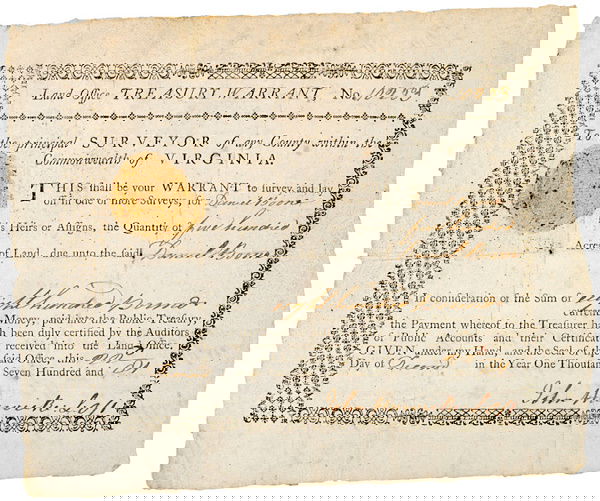 Land Office TREASURY WARRANT, No.
To the principal SURVEYOR of any County within the
Commonwealth of VIRGINIA.
THIS shall be your WARRANT to survey and lay
off in one or more Surveys, for Daniel Boone
his Heirs or Assigns, the Quantity of five hundred
Acres of Land, due unto the said Daniel Boone
In consideration of the Sum of
Eight Hundred Pounds
current Money, paid into the Public Treasury;
the Payment whereof to the Treasurer
hath been duly certified by the Auditors
of Public Accounts and their Certificate
received into the Land-Office,
GIVEN under my Hand, and the Seal of the
said Office, this
Day of December in the Year One Thousand
Seven Hundred and